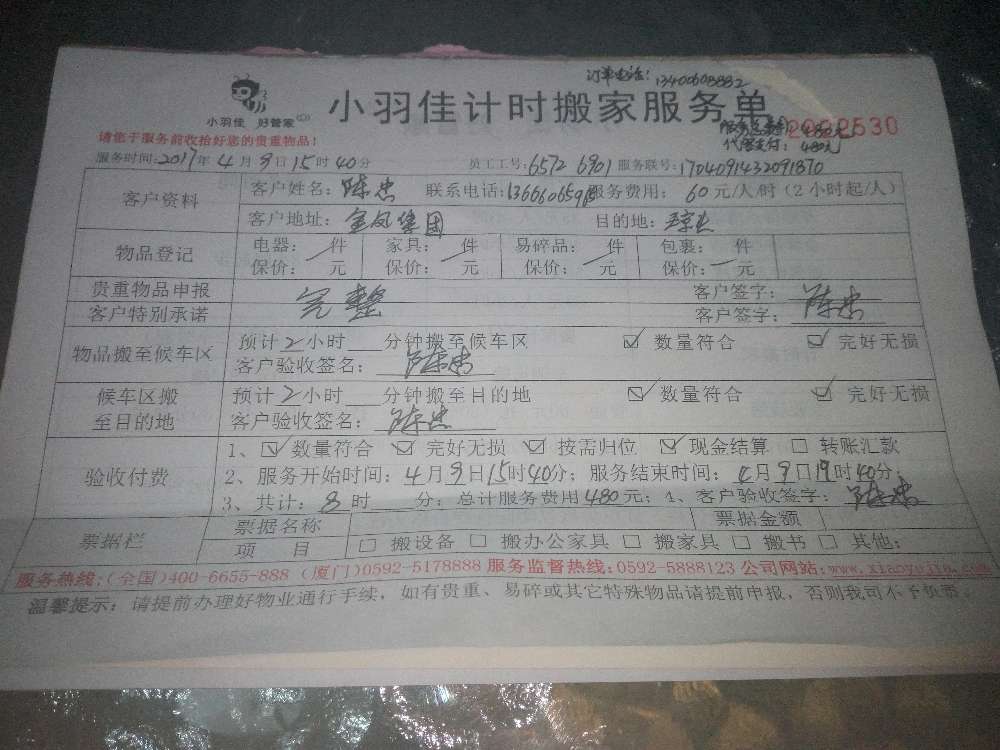 订单电话：13400608882
小羽佳 好管家
小羽佳计时搬家服务单
请您于服务前收拾好您的贵重物品！
服务总费用：480元
代客支付：480元
服务时间：2017年4月9日15时40分 员工工号：6572 6901 服务联号：1704091432091870
客户资料 客户姓名：陈忠 联系电话： 服务费用：60元/人/时（2小时起/人）
客户地址：金凤集团 目的地：
物品登记 电器：/件 家具：/件 易碎品：/件 包裹：/件
保价：元 保价：元 保价：元 保价：元
贵重物品申报 完整 客户签字：陈忠
客户特别承诺 客户签字：
物品搬至候车区 预计2小时 分钟搬至候车区 ☑ 数量符合 ☑ 完好无损
客户验收签名：陈忠
候车区搬至目的地 预计2小时 分钟搬至目的地 ☑ 数量符合 ☑ 完好无损
客户验收签名：陈忠
验收付费 1、☑ 数量符合 ☑ 完好无损 ☑ 按需归位 ☑ 现金结算 □ 转账汇款
2、服务开始时间：4月9日15时40分；服务结束时间：4月9日19时40分；
3、共计：8时 分；总计服务费用480元；4、客户验收签字：陈忠
票据栏 票据名称 票据金额
项目 □ 搬设备 □ 搬办公家具 □ 搬家具 □ 搬书 □ 其他：
服务热线：(全国)400-6655-888 (厦门)0592-5178888 服务监督热线：0592-5888123 公司网站：www.xiaoyujia.com
温馨提示：请提前办理好物业通行手续，如有贵重、易碎或其它特殊物品请提前申报，否则我司不予负责。